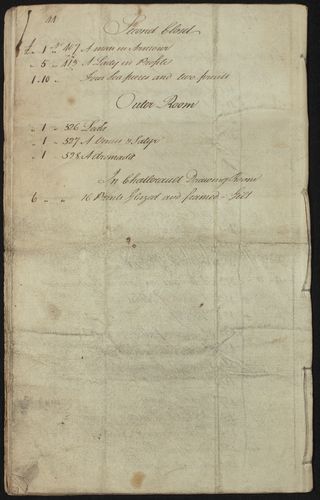 44
Second Closet
£ 1 " " 407 A man in Armour
" 5 " 413 A Lady in Profile
1.10 " Four Sea pieces and two fruits
Outer Room
" 1 " 526 Leda
" 1 " 527 A Venus & Satyr
" 1 " 528 A
In Drawing Room
6 " " 16 Prints Glazed and framed - Gilt